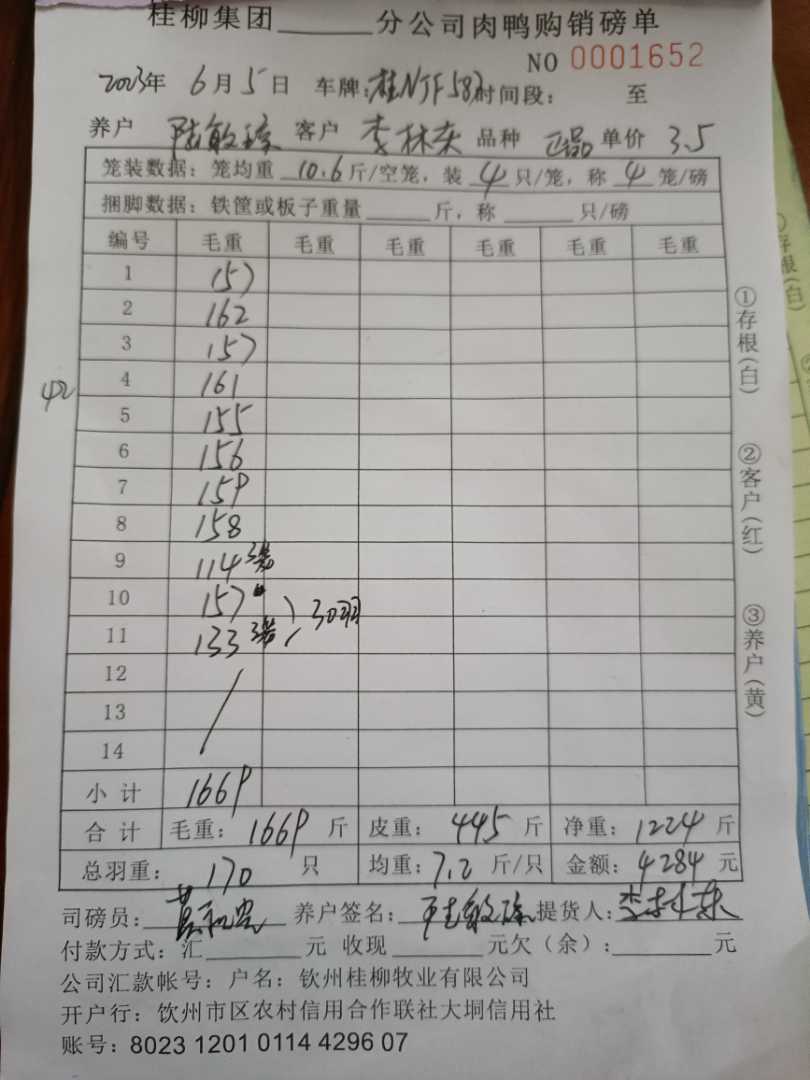 桂柳集团______分公司肉鸭购销磅单
NO 0001652
2023年 6月5日 车牌:桂NJF587时间段: 至
养户 陆敏 客户 李林东 品种 正品 单价 3.5
笼装数据：笼均重 10.6 斤/空笼，装 4 只/笼，称 4 笼/磅
捆脚数据：铁筐或板子重量______斤，称______只/磅
编号 毛重 毛重 毛重 毛重 毛重 毛重
1 157
2 162
3 157
4 161
42
5 155
6 156
7 159
8 158
9 114 3笼
10 157 30羽
11 133 3笼
12
13
14
小计 1669
合计 毛重：1669 斤 皮重：445 斤 净重：1224 斤
总羽重：170 只 均重：7.2 斤/只 金额：4284 元
司磅员：黄 养户签名：陆敏 提货人：李林东
付款方式：汇______元 收现______元欠（余）：______元
公司汇款帐号：户名：钦州桂柳牧业有限公司
开户行：钦州市区农村信用合作联社大垌信用社
账号：8023 1201 0114 4296 07
①存根(白)
②客户(红)
③养户(黄)
存根(白)